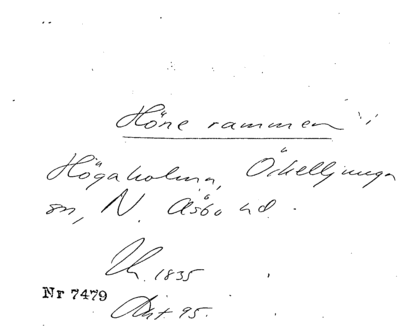 Höne rammen
Högaholma, Örkelljunga
sn, N. Åsbo hd.
Uk. 1835
Nr 7479
Ant. 95.